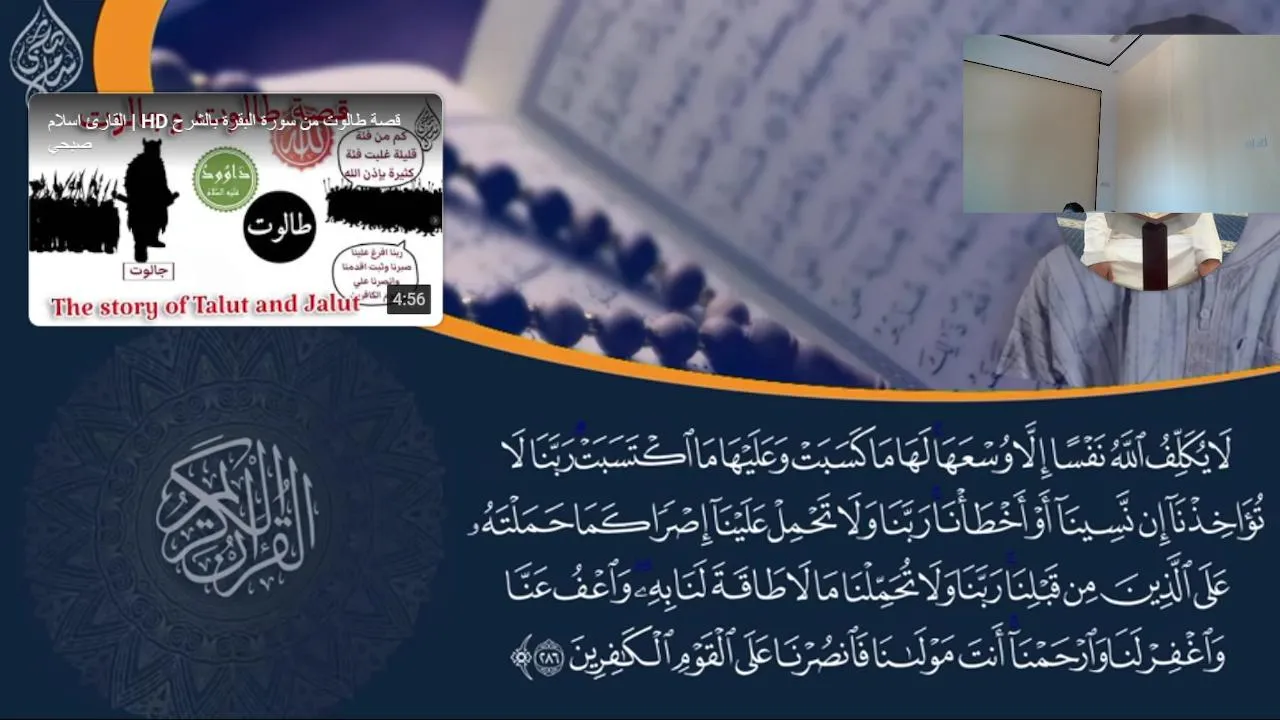 قصة طالوت من سورة البقرة بالشرح HD | القارئ اسلام
صبحي
كم من فئة
قليلة غلبت فئة
كثيرة بإذن الله
الله
دَاوُودُ
عليه السلام
طالوت
جالوت
ربنا افرغ علينا
صبرنا وثبت اقدمنا
وانصرنا علي
الكافرين
The story of Talut and Jalut
4:56
القرآن الكريم
لَا يُكَلِّفُ ٱللَّهُ نَفْسًا إِلَّا وُسْعَهَا ۚ لَهَا مَا كَسَبَتْ وَعَلَيْهَا مَا ٱكْتَسَبَتْ ۗ رَبَّنَا لَا
تُؤَاخِذْنَآ إِن نَّسِينَآ أَوْ أَخْطَأْنَا ۚ رَبَّنَا وَلَا تَحْمِلْ عَلَيْنَآ إِصْرًا كَمَا حَمَلْتَهُۥ
عَلَى ٱلَّذِينَ مِن قَبْلِنَا ۚ رَبَّنَا وَلَا تُحَمِّلْنَا مَا لَا طَاقَةَ لَنَا بِهِۦ ۖ وَٱعْفُ عَنَّا
وَٱغْفِرْ لَنَا وَٱرْحَمْنَآ ۚ أَنتَ مَوْلَىٰنَا فَٱنصُرْنَا عَلَى ٱلْقَوْمِ ٱلْكَٰفِرِينَ ﴿٢٨٦﴾